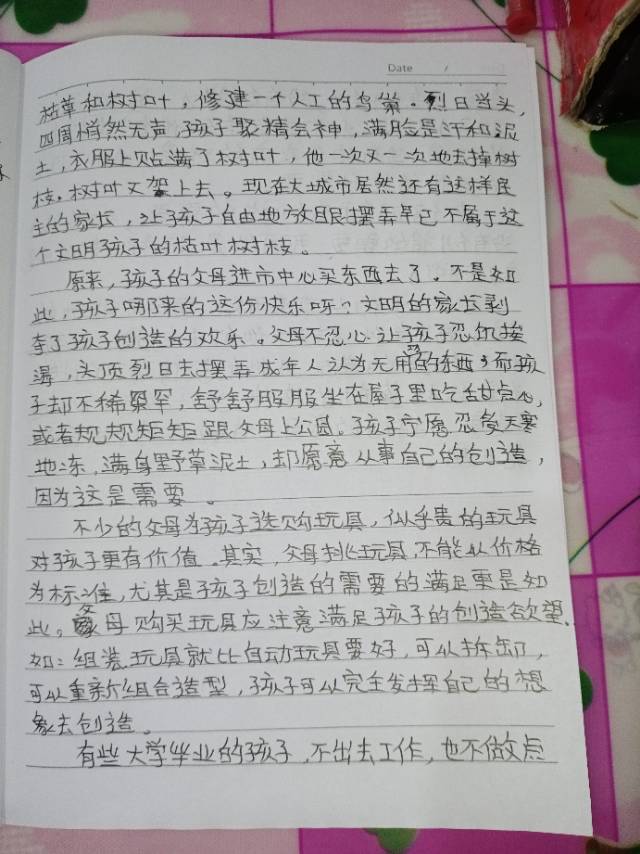 Date /
枯草和树叶，修建一个人工的鸟巢。烈日当头，
四周悄然无声，孩子聚精会神，满脸是汗和泥
土，衣服上贴满了树叶，他一次又一次地去掉树
枝，树叶又架上去。现在大城市居然还有这样民
主的家长，让孩子自由地放眼摆弄早已不属于这
个文明孩子的枯叶树枝。
原来，孩子的父母进市中心买东西去了。不是如
此，孩子哪来的这份快乐呀？文明的家长剥
夺了孩子创造的欢乐。父母不忍心让孩子忍饥挨
渴，头顶烈日去摆弄成年人认为无用的东西，而孩
子却不稀罕，舒舒服服坐在屋子里吃甜点心，
或者规规矩矩跟父母上公园。孩子宁愿忍受天寒
地冻，满身野草泥土，却愿意从事自己的创造，
因为这是需要。
不少的父母为孩子选购玩具，似乎贵的玩具
对孩子更有价值。其实，父母挑玩具，不能以价格
为标准，尤其是孩子创造的需要的满足更是如
此。父母购买玩具应注意满足孩子的创造欲望。
如：组装玩具就比自动玩具要好，可以拆卸，
可以重新组合造型，孩子可以完全发挥自己的想
象去创造。
有些大学毕业的孩子，不出去工作，也不做点